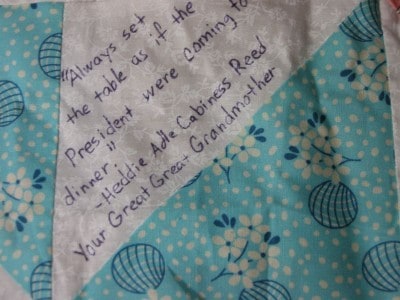 "Always set
the table as if the
President were coming to
dinner."
-Heddie Adle Cabiness Reed
Your Great Great Grandmother